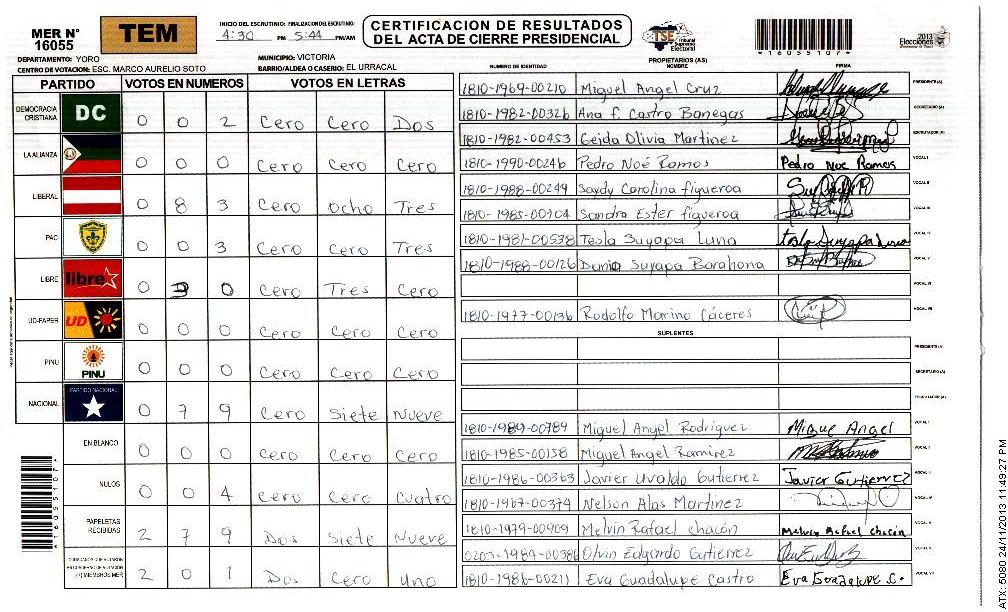 MER N° 16055
TEM
INICIO DEL ESCRUTINIO: 4:30 PM
FINALIZACION DEL ESCRUTINIO: 5:44 PM/AM
CERTIFICACION DE RESULTADOS
DEL ACTA DE CIERRE PRESIDENCIAL
TSE Tribunal Supremo Electoral
*16055107*
2013 Elecciones
DEPARTAMENTO: YORO
MUNICIPIO: VICTORIA
CENTRO DE VOTACION: ESC. MARCO AURELIO SOTO
BARRIO/ALDEA O CASERIO: EL URRACAL
PARTIDO VOTOS EN NUMEROS VOTOS EN LETRAS
DEMOCRACIA CRISTIANA DC 0 0 2 Cero Cero Dos
LA ALIANZA 0 0 0 Cero Cero Cero
LIBERAL 0 8 3 Cero Ocho Tres
PAC 0 0 3 Cero Cero Tres
LIBRE libre 0 3 0 Cero Tres Cero
UD-FAPER UD 0 0 0 Cero Cero Cero
PINU PINU 0 0 0 Cero Cero Cero
NACIONAL PARTIDO NACIONAL 0 7 9 Cero Siete Nueve
EN BLANCO 0 0 0 Cero Cero Cero
NULOS 0 0 4 Cero Cero Cuatro
PAPELETAS RECIBIDAS 2 7 9 Dos Siete Nueve
(+) MIEMBROS MER 2 0 1 Dos Cero uno
*16055107*
PROPIETARIOS (AS)
NUMERO DE IDENTIDAD NOMBRE FIRMA
1810-1969-00210 Miguel Angel Cruz PRESIDENTE(A)
1810-1982-00326 Ana f. Castro Banegas SECRETARIO(A)
1810-1982-00453 Geida Olivia Martinez ESCRUTADOR(A)
1810-1990-00246 Pedro Noé Ramos Pedro Noe Ramos VOCAL I
1810-1988-00249 Saydy Carolina figueroa VOCAL II
1810-1985-00904 Sandra Ester figueroa VOCAL III
1810-1981-00538 Tesla Suyapa Luna Tesla Suyapa Luna VOCAL IV
1810-1988-00126 Dunia Suyapa Barahona VOCAL V
VOCAL VI
1810-1977-00136 Rodolfo Marino Cáceres VOCAL VII
SUPLENTES
PRESIDENTE (A)
SECRETARIO (A)
ESCRUTADOR (A)
1810-1989-00789 Miguel Angel Rodriguez Migue Angel VOCAL I
1810-1985-00158 Miguel Angel Ramirez VOCAL II
1810-1986-00363 Javier Uvaldo Gutierrez Javier Gutierrez VOCAL III
1810-1967-00374 Nelson Alas Martinez VOCAL IV
1810-1979-00909 Melvin Rafael chacón Melvin Rafael chacón VOCAL V
0203-1984-00386 Olvin Edgardo Gutierrez VOCAL VI
1810-1986-00211 Eva Guadalupe Castro Eva Guadalupe C. VOCAL VII
ATX 5080 24/11/2013 11:49:27 PM